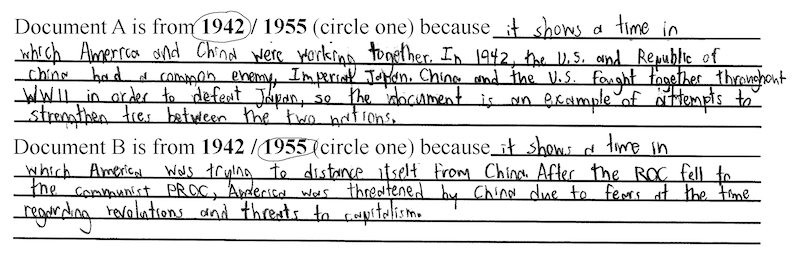 Document A is from 1942 / 1955 (circle one) because it shows a time in
which America and China were working together. In 1942, the U.S. and Republic of
china had a common enemy, Imperial Japan. China and the U.S. fought together throughout
WWII in order to defeat Japan, so the document is an example of attempts to
strengthen ties between the two nations.
Document B is from 1942 / 1955 (circle one) because it shows a time in
which America was trying to distance itself from China. After the ROC fell to
the communist PROC, America was threatened by China due to fears at the time
regarding revolutions and threats to capitalism.